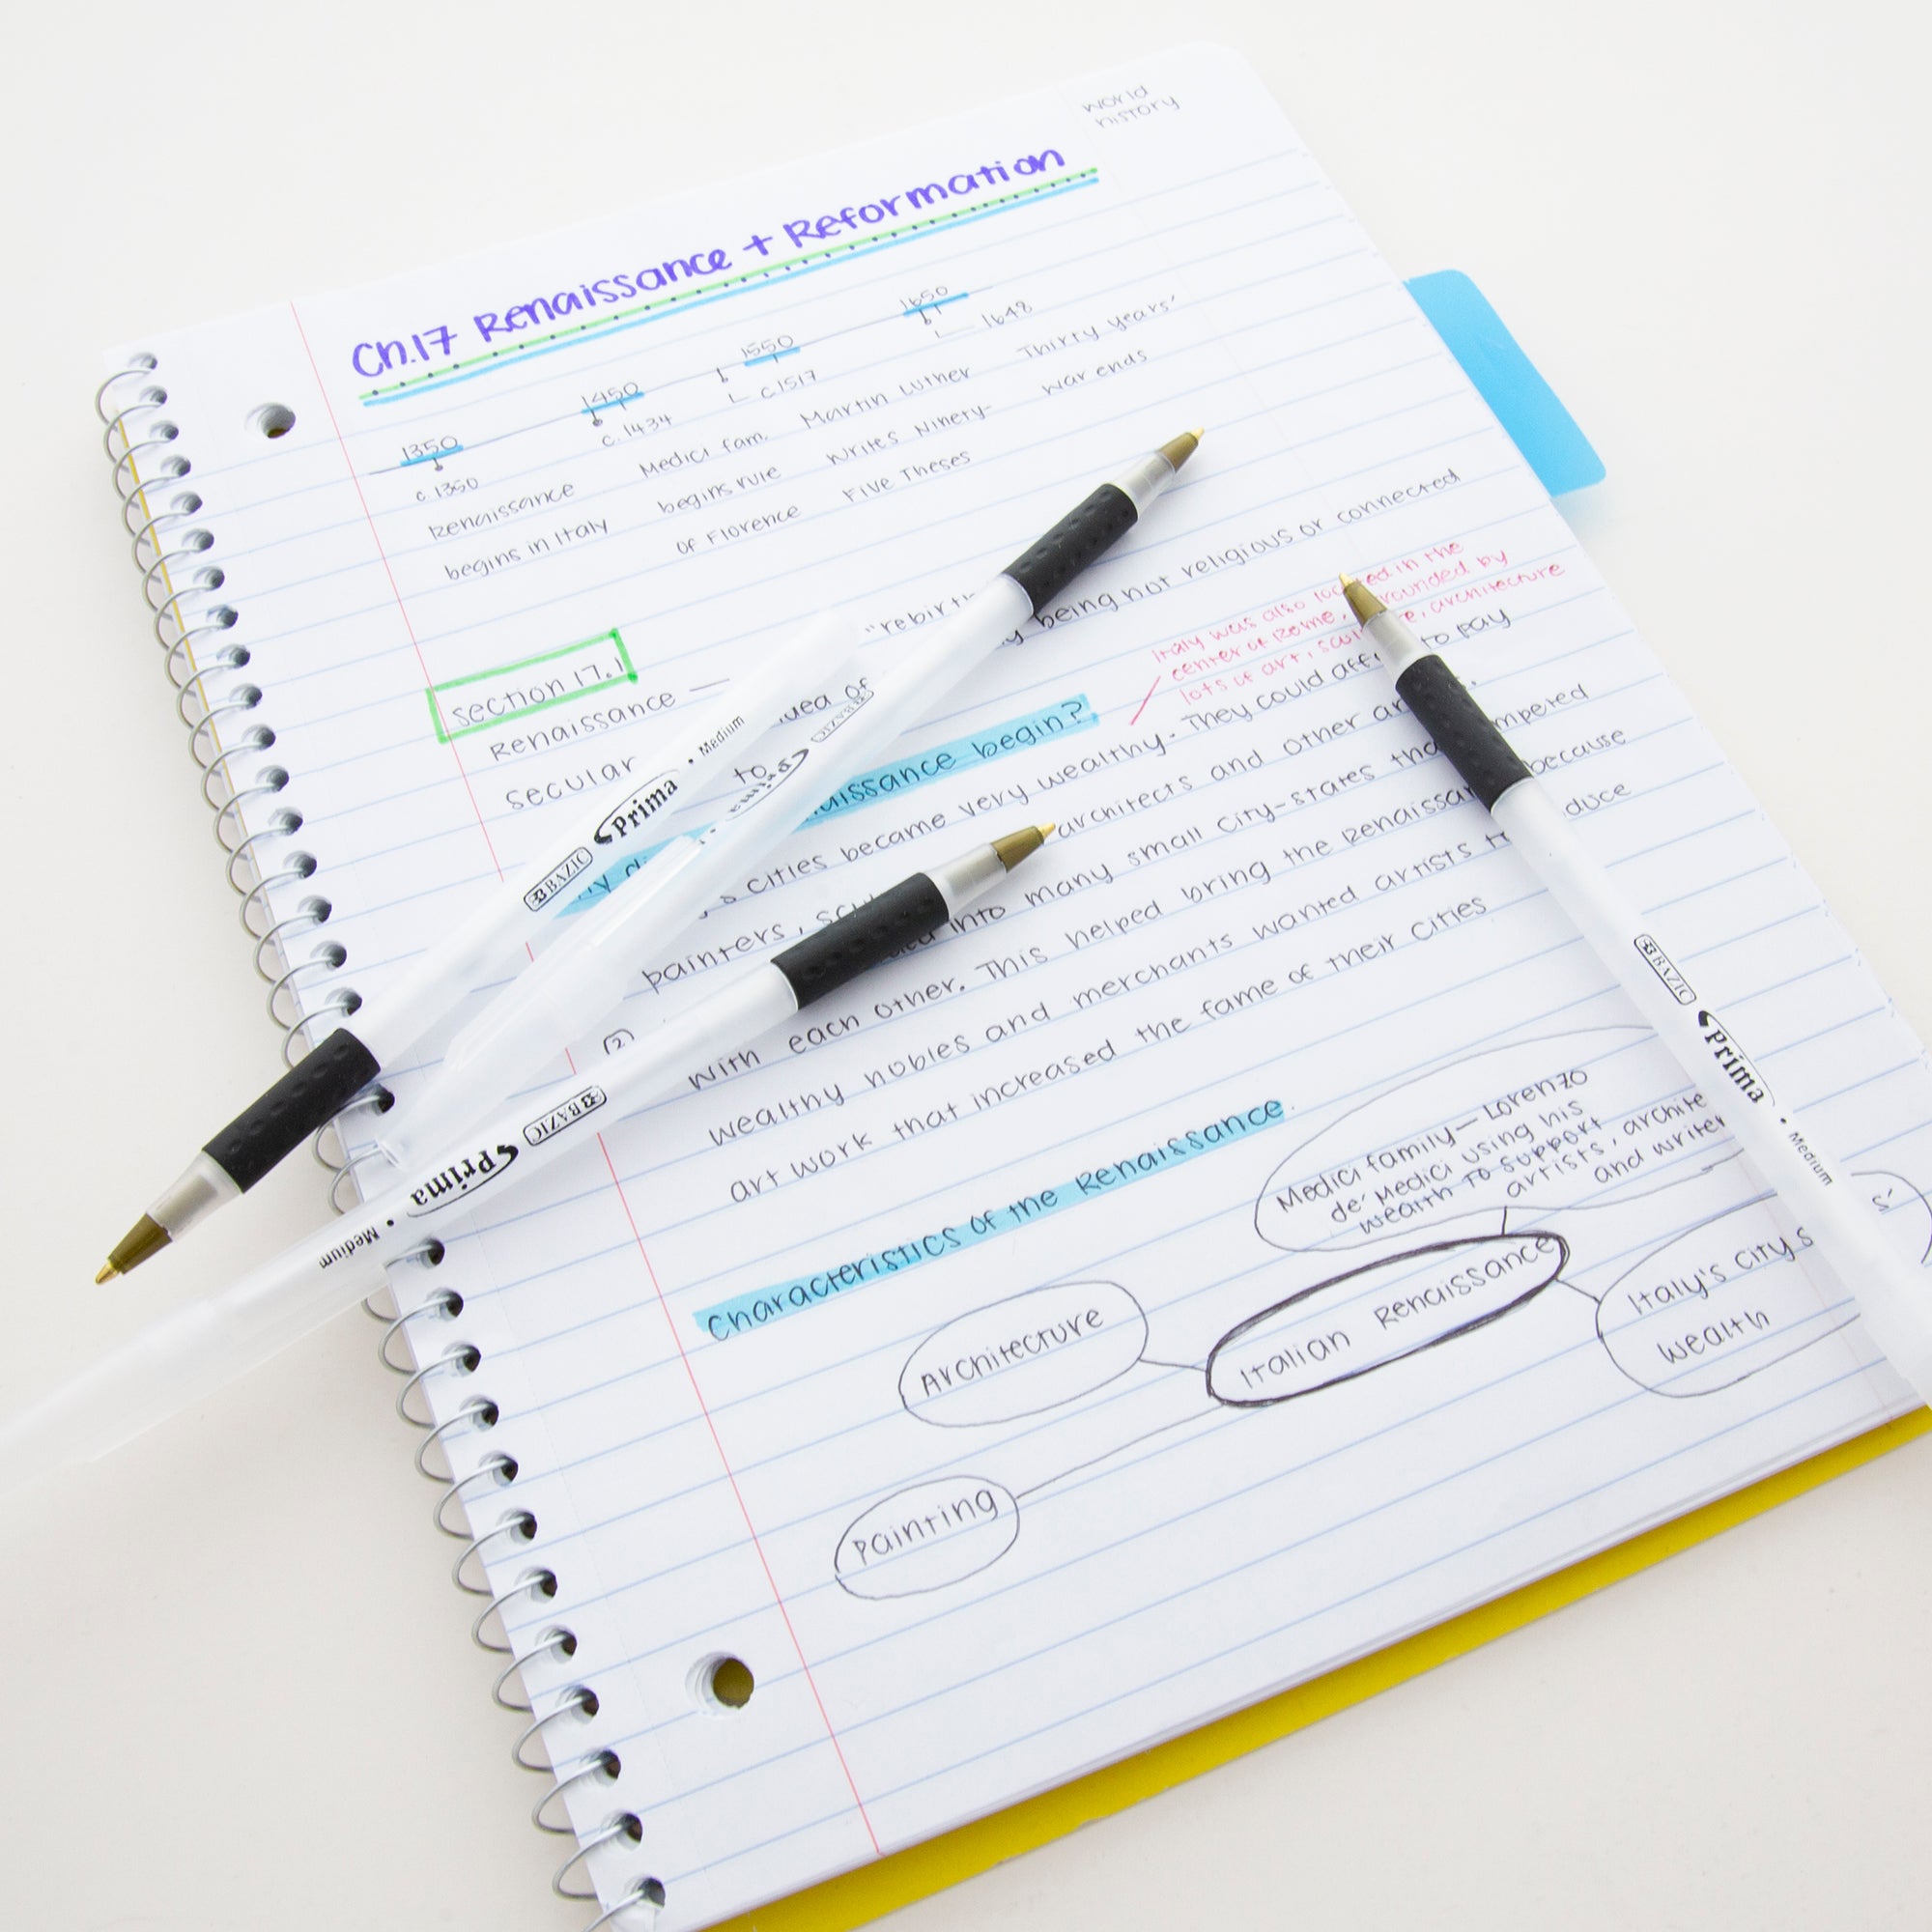 world
history
Ch.17 Renaissance + Reformation
1350 1450 1550 1650
c. 1350 c. 1434 c. 1517 1648
Renaissance Medici fam. Martin Luther Thirty Years'
begins in Italy begins rule writes Ninety- war ends
of Florence Five Theses
section 17.1
Renaissance — "rebirth
secular idea of being not religious or connected
to
Italy was also located in the
center of Rome, surrounded by
lots of art, sculpture, architecture
Renaissance begin?
cities became very wealthy. They could afford to pay
painters, architects and other
(2) into many small city-states that
with each other. This helped bring the Renaissance because
wealthy nobles and merchants wanted artists to produce
art work that increased the fame of their cities
Characteristics of the Renaissance
Medici family — Lorenzo
de' Medici using his
wealth to support
artists,
and
Italian Renaissance
Architecture
Painting
Italy's city
wealth
BAZIC Prima • Medium
BAZIC Prima
BAZIC Prima • Medium
BAZIC Prima • Medium